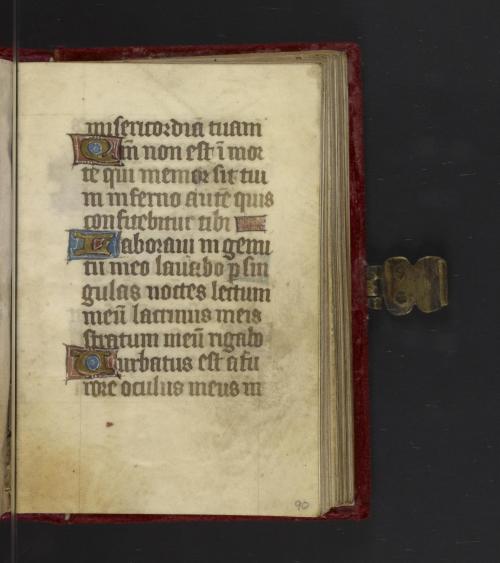 misericordiā tuam
Qm̄ non est ī mor
te qui memor sit tui
in inferno autē quis
confitebitur tibi
Laboraui in gemi
tu meo lauabo p sin
gulas noctes lectum
meū lacrimis meis
stratum meū rigabo
Turbatus est a fu
rore oculus meus in
90